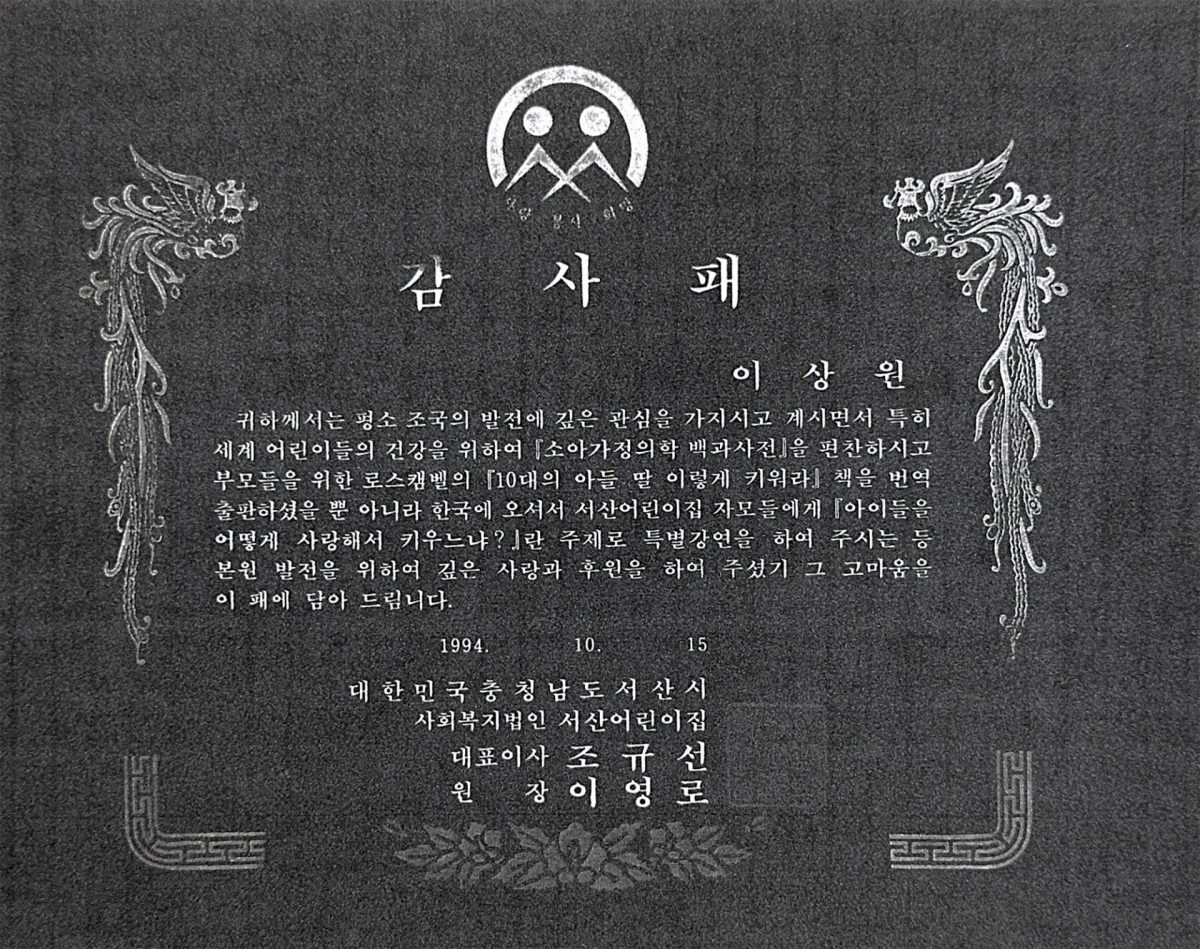 사랑 봉사 희망
감 사 패
이 상 원
귀하께서는 평소 조국의 발전에 깊은 관심을 가지시고 계시면서 특히
세계 어린이들의 건강을 위하여 『소아가정의학 백과사전』을 편찬하시고
부모들을 위한 로스캠벨의 『10대의 아들 딸 이렇게 키워라』 책을 번역
출판하셨을 뿐 아니라 한국에 오셔서 서산어린이집 자모들에게 『아이들을
어떻게 사랑해서 키우느냐?』란 주제로 특별강연을 하여 주시는 등
본원 발전을 위하여 깊은 사랑과 후원을 하여 주셨기 그 고마움을
이 패에 담아 드림니다.
1994. 10. 15
대한민국충청남도서산시
사회복지법인 서산어린이집
대표이사 조 규 선
원 장 이 영 로